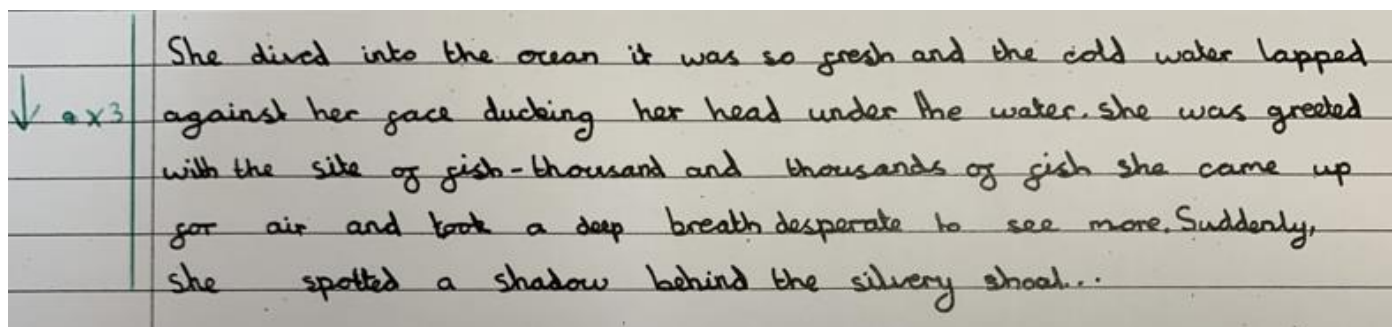 She dived into the ocean it was so fresh and the cold water lapped
↓ • x3 against her face ducking her head under the water. she was greeted
with the site of fish - thousand and thousands of fish she came up
for air and took a deep breath desperate to see more. Suddenly,
she spotted a shadow behind the silvery shoal...